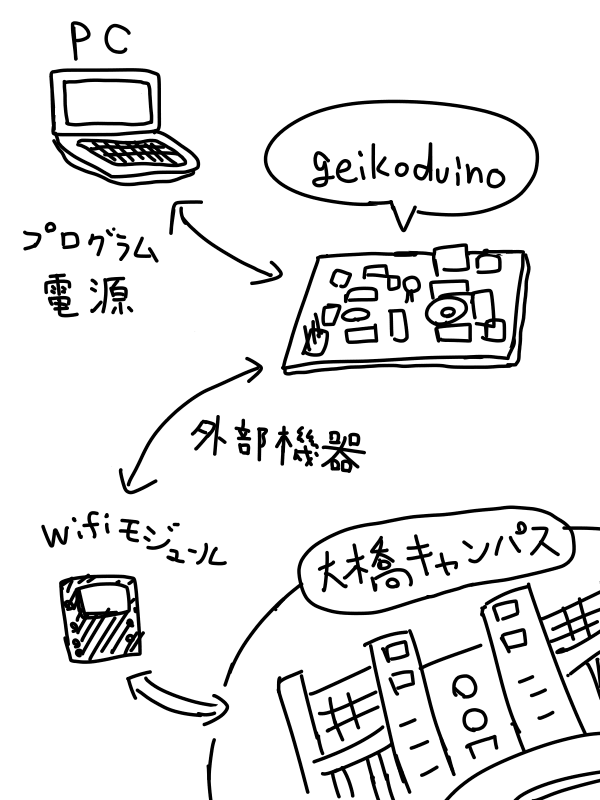 PC
geikoduino
プログラム
電源
外部機器
wifiモジュール
大橋キャンパス